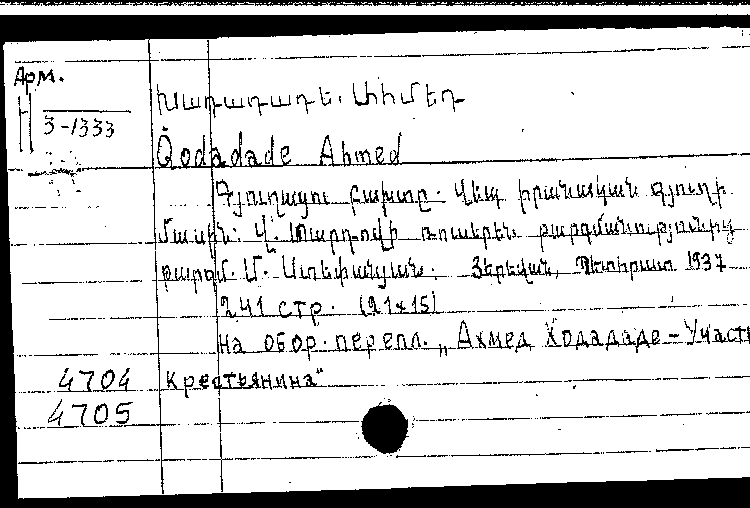 Арм.
H
3-1333
Խադադադե. Ահմեդ
Qodadade Ahmed
Գյուղացու բախտը. Վեպ իրանական գյուղի
մասին: Վ. Տարդովի ռուսերեն թարգմանությունից
թարգմ. Մ. Ստեփանյան. Յերեվան, Պետհրատ 1937
241 стр. (21×15)
На обор. перепл. „Ахмед Ходададе – Участь
4704 Крестьянина“
4705